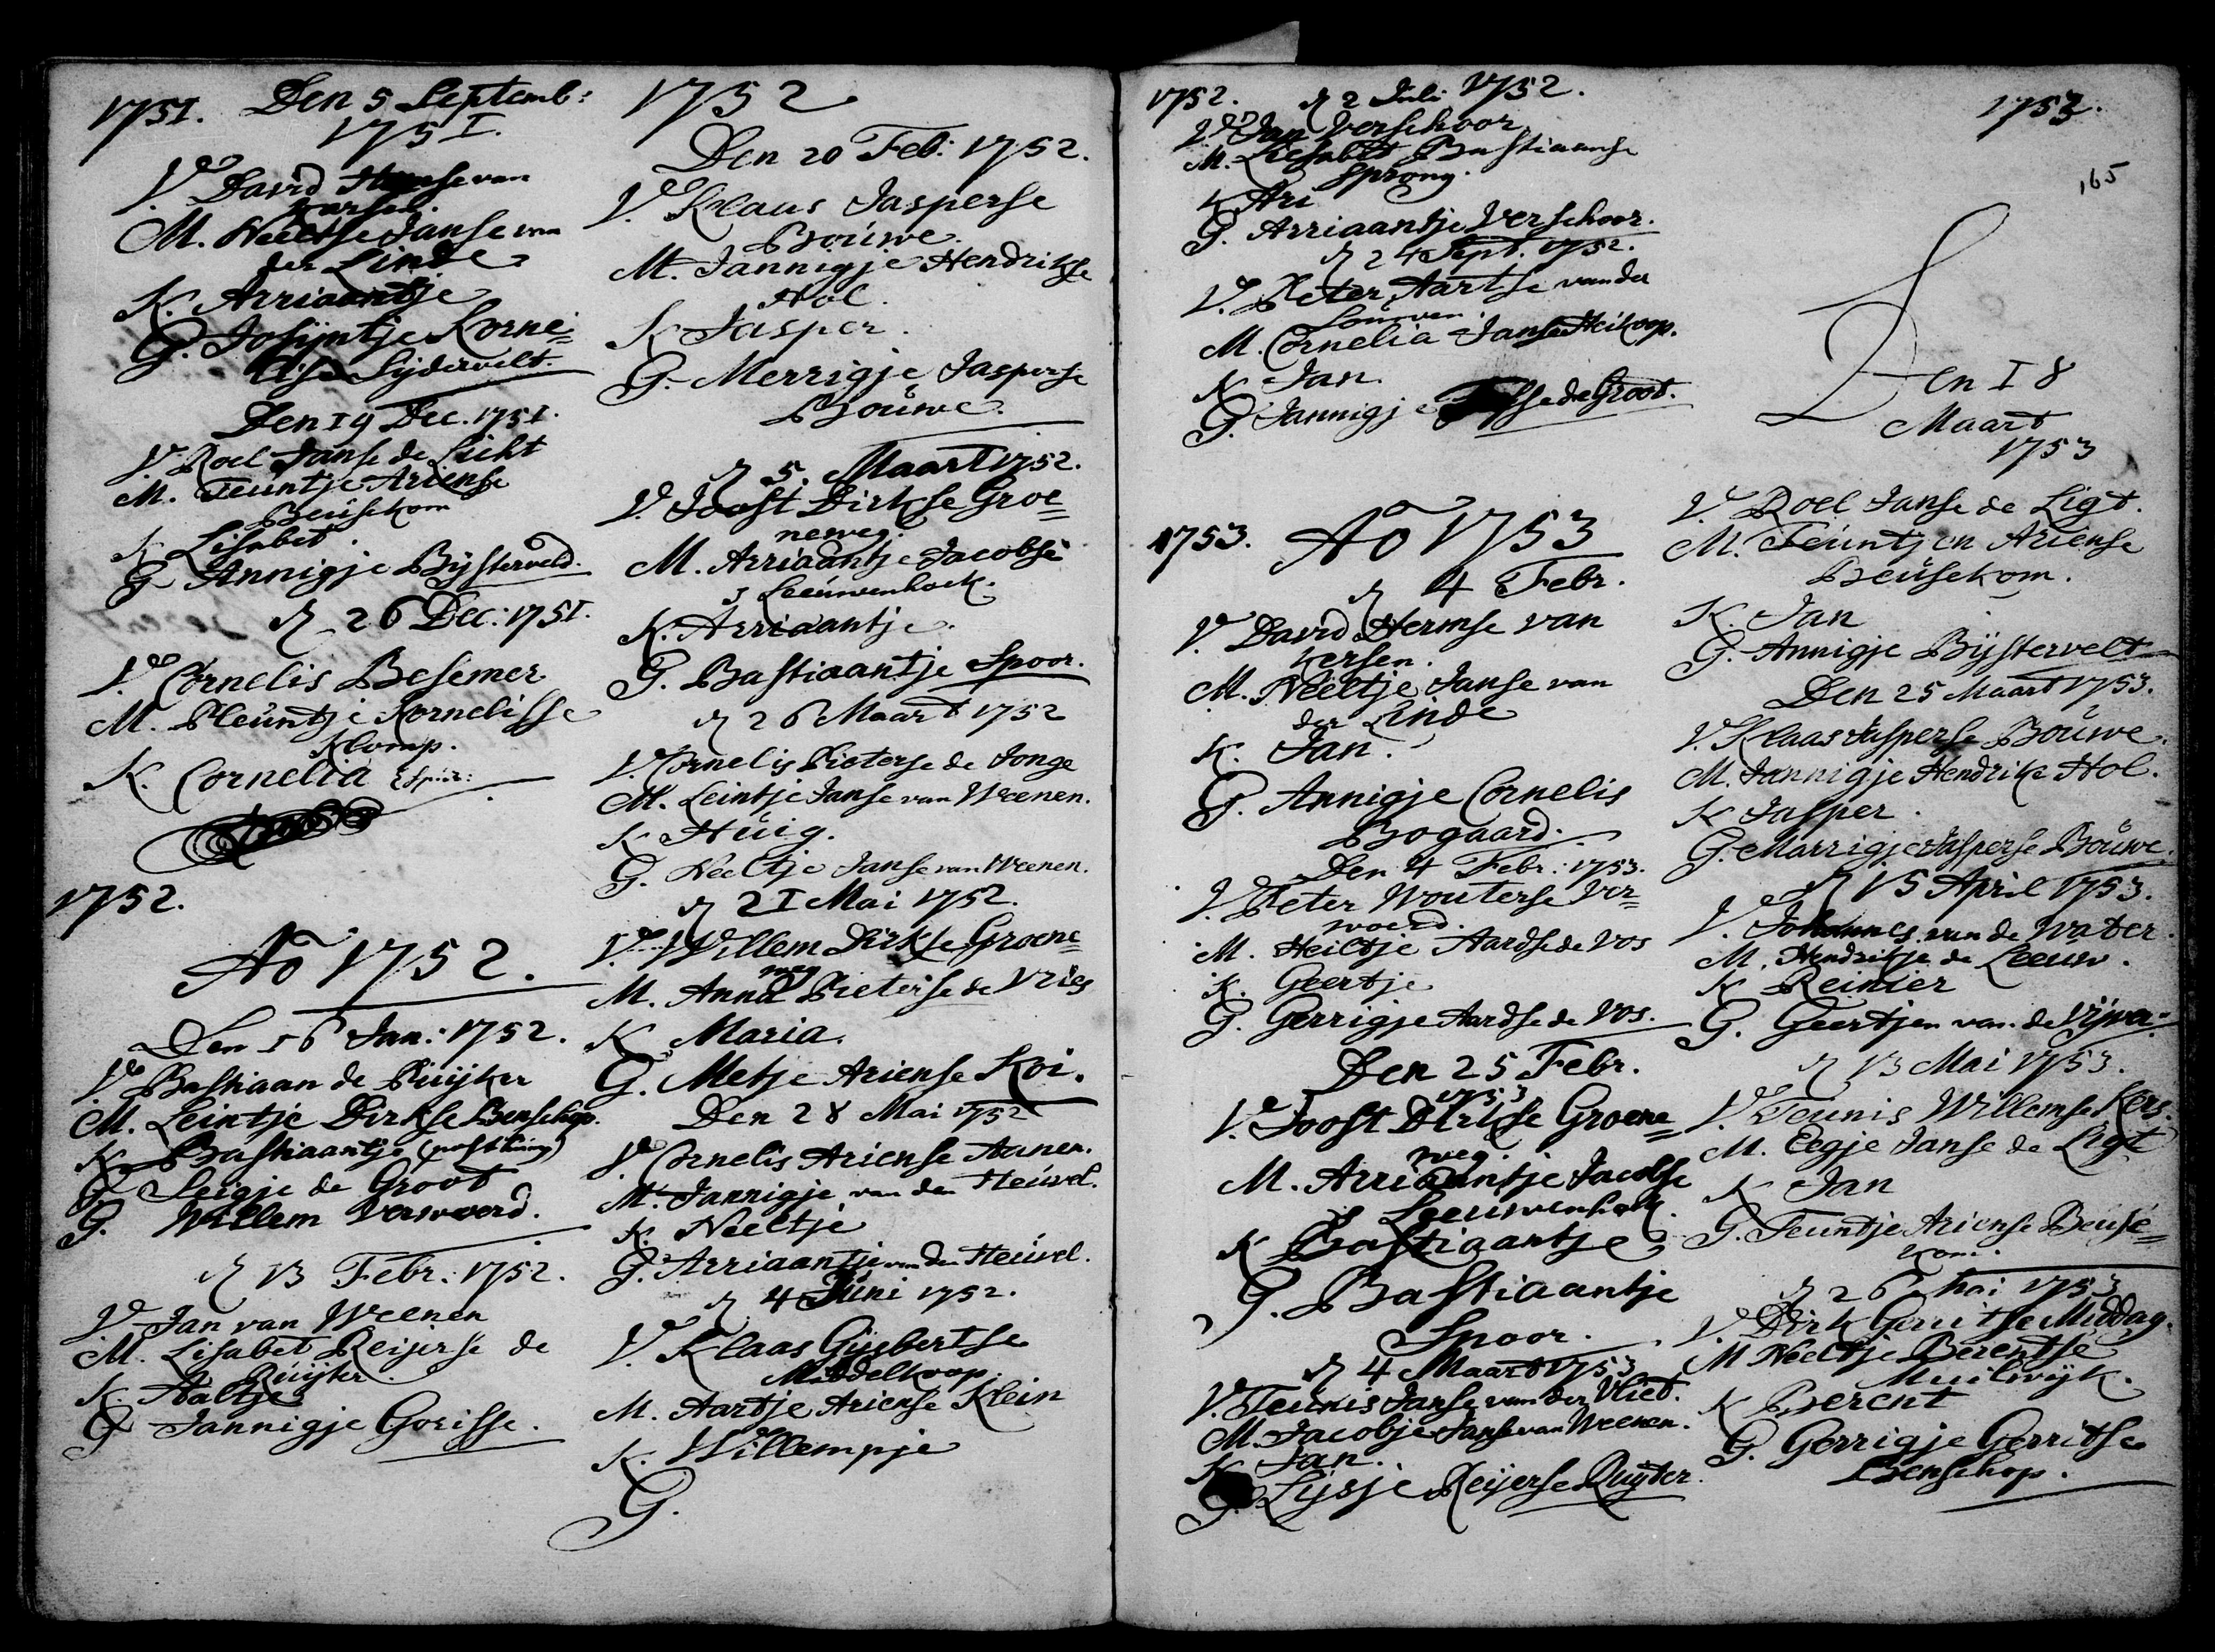 1751. Den 5 Septemb:
1751.
V. David Hermse van
Karsen.
M. Neeltje Janse van
der Linde
K. Arriaantje
G. Josijntje Korne=
lisse Sijdervelt.
Den 19 Dec. 1751.
V. Roel Janse de Licht
M. Teuntje Ariense
Beusekom
K Lisabet.
G Annigje Bijsterveld.
d 26 Dec: 1751.
V. Cornelis Besemer
M. Pleuntje Kornelisse
Klomp.
K. Cornelia
1752.
Ao 1752.
Den 16 Jan: 1752.
V. Bastiaan de Ruijter
M. Leintje Dirkse Benschop.
K. Bastiaantje (posthuum)
G Leigje de Groot
G. Willem Verwoerd.
d 13 Febr: 1752.
V. Jan van Weenen
M. Lisabet Reijerse de
Ruijter.
K. Aaltje
G Jannigje Gorisse.
1752
Den 20 Feb: 1752.
V. Klaas Jasperse
Bouwe.
M. Jannigje Hendrikse
Hol.
K Jasper.
G. Merrigje Jasperse
Bouwe.
d 5. Maart 1752.
V. Joost Dirkse Groe=
neweg.
M. Arriaantje Jacobse
Leeuwenhoek.
K. Arriaantje.
G. Bastiaantje Spoor.
d 26 Maart 1752
V. Cornelis Pieterse de Jonge
M. Leintje Janse van Weenen.
K Huig.
G. Neeltje Janse van Weenen.
d 21 Mai 1752.
V. Willem Dirkse Groene=
weg
M. Anna Pieterse de Vries
K Maria.
G. Metje Ariense Koi.
Den 28 Mai 1752
V. Cornelis Ariense Aanen.
M. Jannigje van den Heuvel.
K. Neeltje
G. Arriaantje van den Heuvel.
d 4 Juni 1752.
V. Klaas Gijsbertse
Middelkoop.
M. Aartje Ariense Klein
K. Willempje
G.
1752. d 2 Juli 1752.
V. Jan Verschoor
M. Liesabet Bastiaanse
Sprong.
K Ari
G. Arriaantje Verschoor.
d 24 Sept. 1752.
V. Peter Aartse van der
Louwen.
M. Cornelia Janse Heikoop.
K Jan.
G. Jannigje de Groot.
1753. Ao 1753
d 4 Febr.
V. David Hermse van
Kersen.
M. Neeltje Janse van
der Linde
K. Jan.
G. Annigje Cornelis
Bogaard.
Den 4 Febr: 1753.
V. Peter Wouterse Ver=
woerd.
M. Heiltje Aardse de Vos
K. Geertje
G. Gerrigje Aardse de Vos.
Den 25 Febr.
1753
V. Joost Dirkse Groene=
weg.
M. Arriaantje Jacobse
Leeuwenhoek.
K Bastiaantje
G. Bastiaantje
Spoor.
d 4 Maart 1753
V. Teunis Janse van der Vliet.
M. Jacobje Janse van Weenen.
K Jan.
G. Lijsje Reijerse Ruijter.
1753.
165
Den 18
Maart
1753
V. Roel Janse de Ligt.
M. Teuntjen Ariense
Beusekom.
K. Jan
G. Annigje Bijstervelt
Den 25 Maart 1753.
V. Klaas Jasperse Bouwe.
M. Jannigje Hendrikse Hol.
K Jasper.
G. Marrigje Jasperse Bouwe.
d 15 April 1753.
V. Johannes van de Water.
M. Hendrikje de Leeuw.
K Reinier
G. Geertjen van de Vijver.
d 13 Mai 1753.
V. Teunis Willemse Kers.
M. Eegje Janse de Ligt
K Jan
G. Teuntje Ariense Beuse=
kom.
d 26 Mai 1753
V. Dirk Gerritse Middag.
M Neeltje Berentse
Muilwijk.
K Berent
G. Gerrigje Gerritse
Benschop.